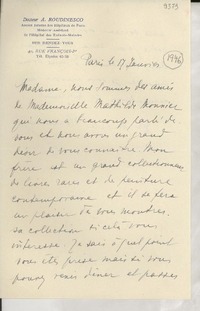 9373
Docteur A. ROUDINESCO
Ancien Interne des Hôpitaux de Paris
Médecin
de l'Hôpital des Enfants-Malades
SUR RENDEZ-VOUS
40, RUE FRANÇOIS-Ier
Tél. Élysées
Paris le 17 Janvier
(1946)
Madame, nous sommes des amis
de Mademoiselle Mathilde Monnier
qui nous a beaucoup parlé de
vous et nous avons un grand
désir de vous connaître. Mon
frère est un grand collectionneur
de livres rares et de peinture
contemporaine et il se fera
un plaisir de vous montrer
sa collection si cela vous
intéresse. Je sais à quel point
vous êtes prise mais si vous
pouvez venir dîner et passer